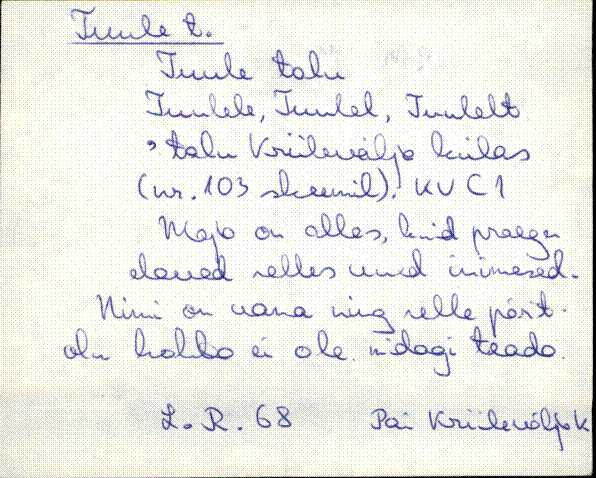 Tuule t.
Tuule talu
Tuulele, Tuulel, Tuulelt
, talu Kriilevälja külas
(nr. 103 skeemil). KV C1
Maja on alles, kuid praegu
elavad selles uued inimesed.
Nimi on vana ning selle pärit-
olu kohta ei ole midagi teada.
L. R. 68 Pai Kriilevälja k